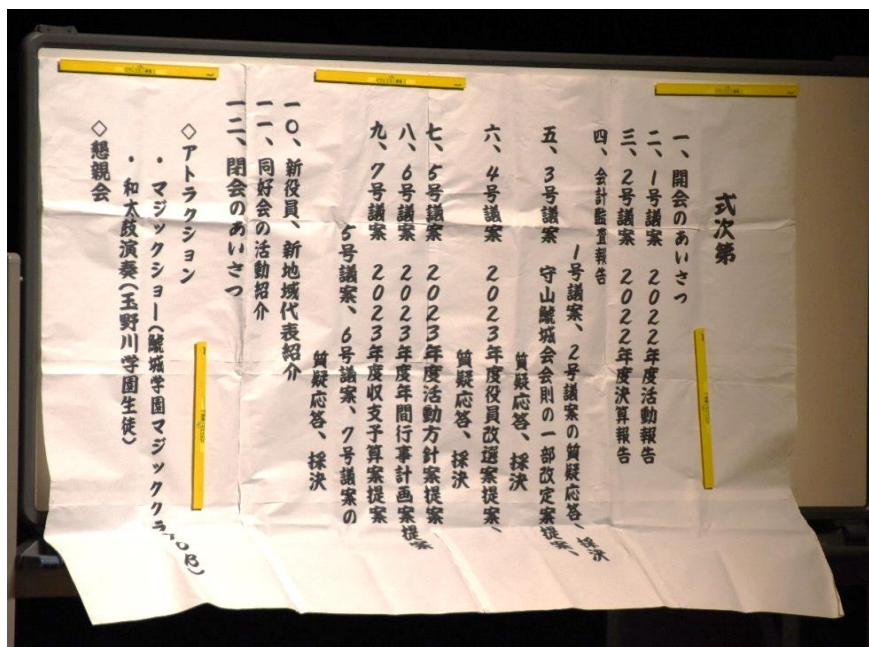 式次第
一、開会のあいさつ
二、1号議案 2022年度活動報告
三、2号議案 2022年度決算報告
四、会計監査報告
1号議案、2号議案の質疑応答、採決
五、3号議案 守山鯱城会会則の一部改定案提案、
質疑応答、採決
六、4号議案 2023年度役員改選案提案、
質疑応答、採決
七、5号議案 2023年度活動方針案提案
八、6号議案 2023年度年間行事計画案提案
九、7号議案 2023年度収支予算案提案
5号議案、6号議案、7号議案の
質疑応答、採決
一〇、新役員、新地域代表紹介
一一、同好会の活動紹介
一二、閉会のあいさつ
◇アトラクション
・マジックショー(鯱城学園マジッククラブOB)
・和太鼓演奏(玉野川学園生徒)
◇懇親会